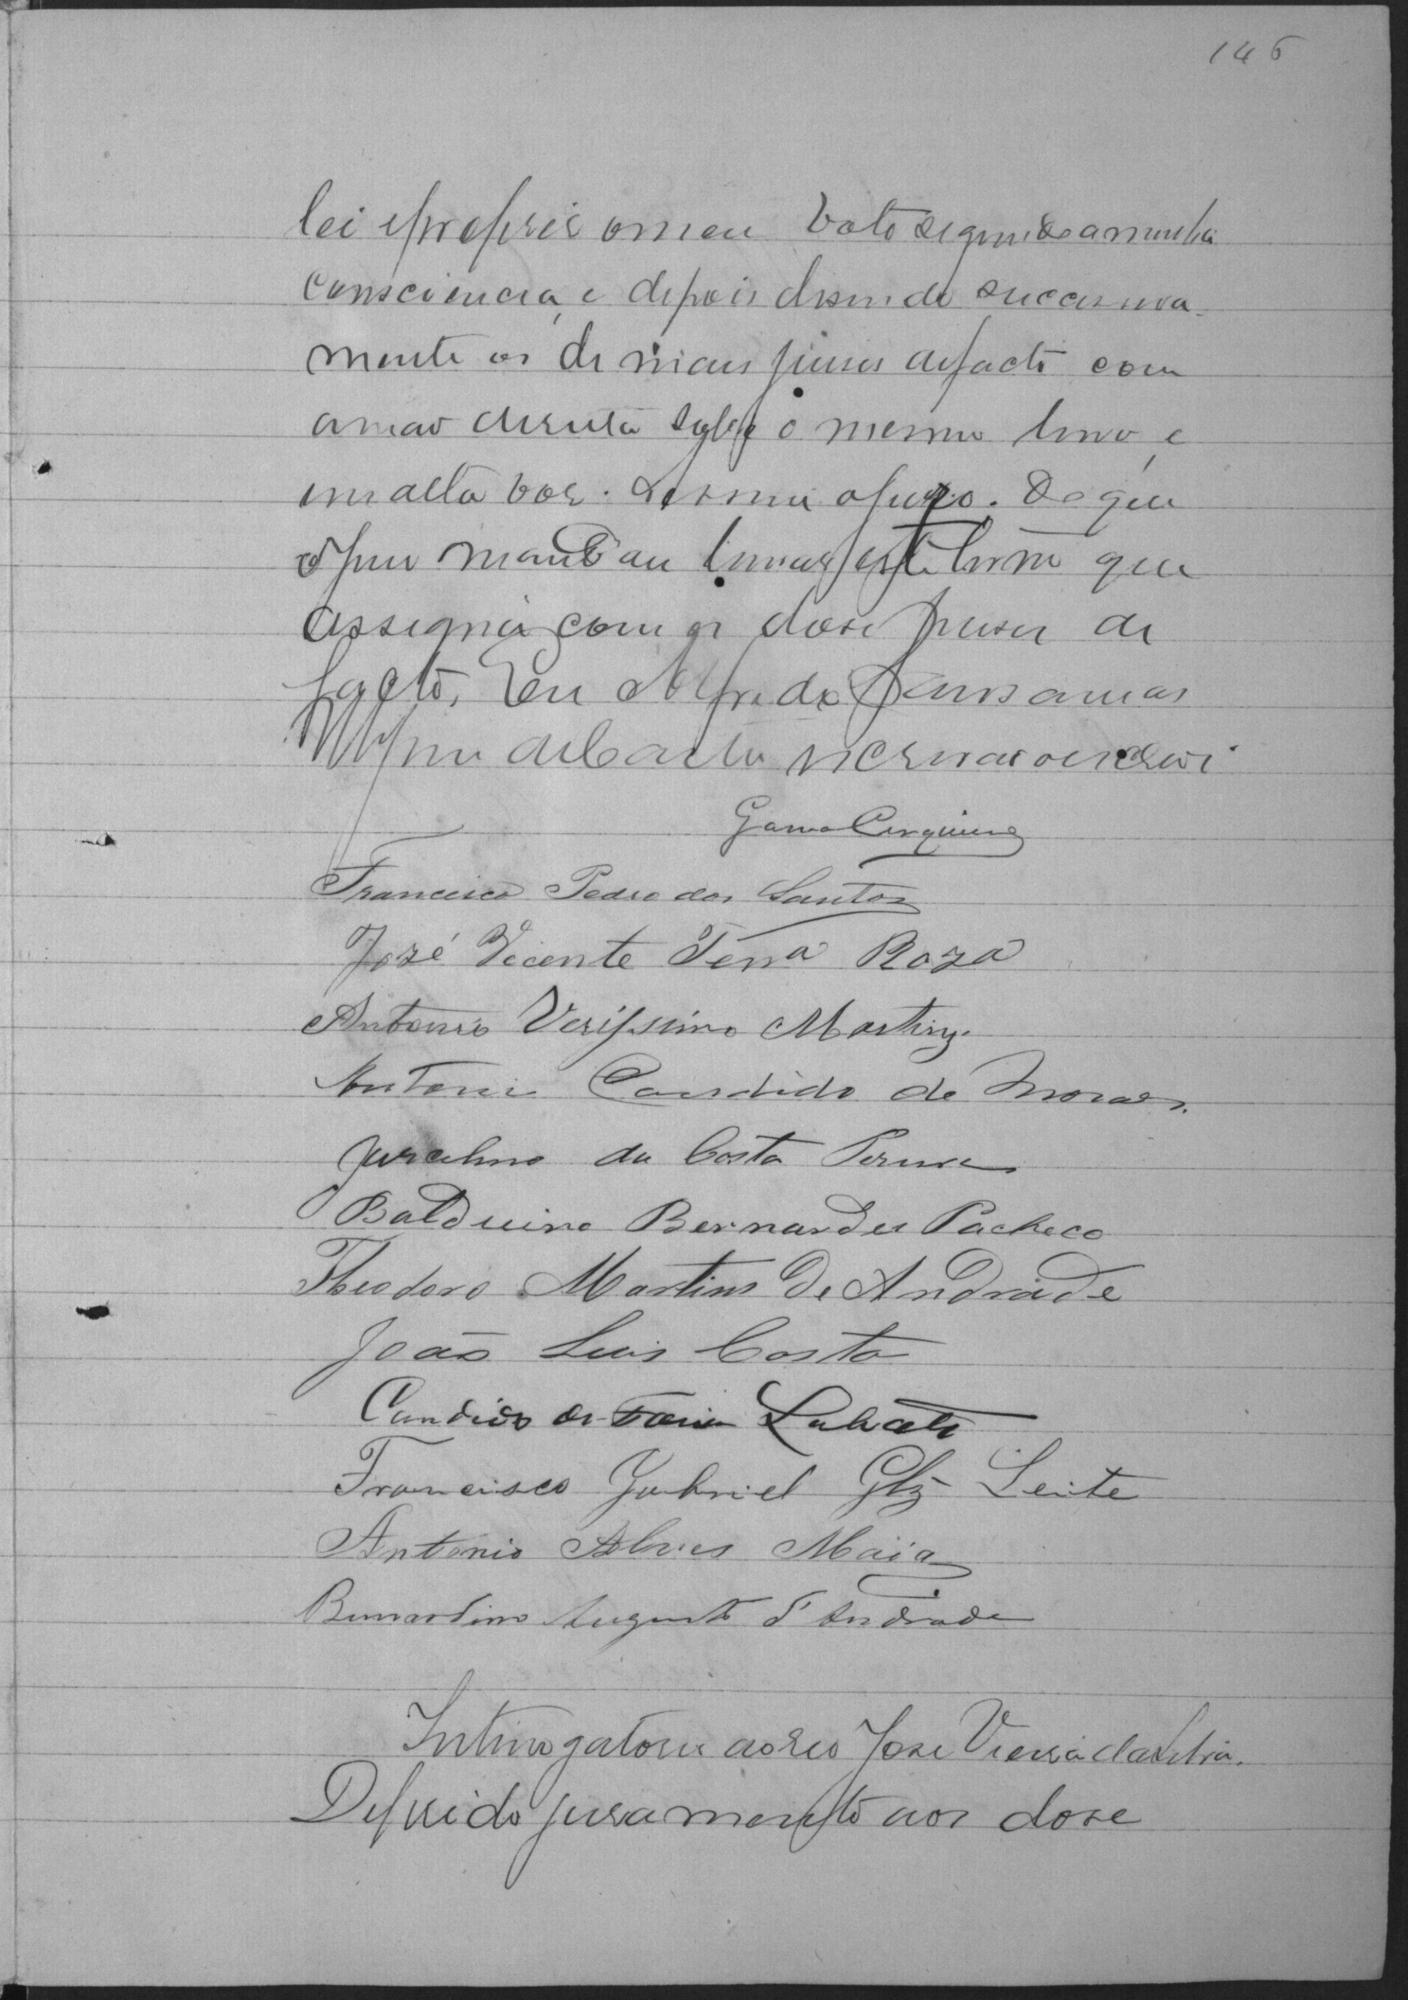 146
lei e proferir o meu voto segundo a minha
consciencia, e depois dizendo successiva-
mente os de mais juises de facto com
a mão direita sobre o mesmo livro, e
em alta voz. assim o juro. Do que
o Juiz mandou lavrar este termo que
assigna com os doze juises de
facto. Eu Alfredo
escrivão o escrevi
Gama Cerqueira
Francisco Pedro dos Santos
José Vicente Terra Roza
Antonio Verissimo Martins.
Antonio Candido de Moraes.
Jurcelino da Costa
Balduino Bernardes Pacheco
Theodoro Martins De Andrade
João Luis Costa
Candido de Faria Lobato
Francisco Gabriel Glz Leite
Antonio Alves Maia
Bernardino Augusto d'Andrade
Interrogatorio ao reo José Vieira da Silva.
Deferido juramento aos doze